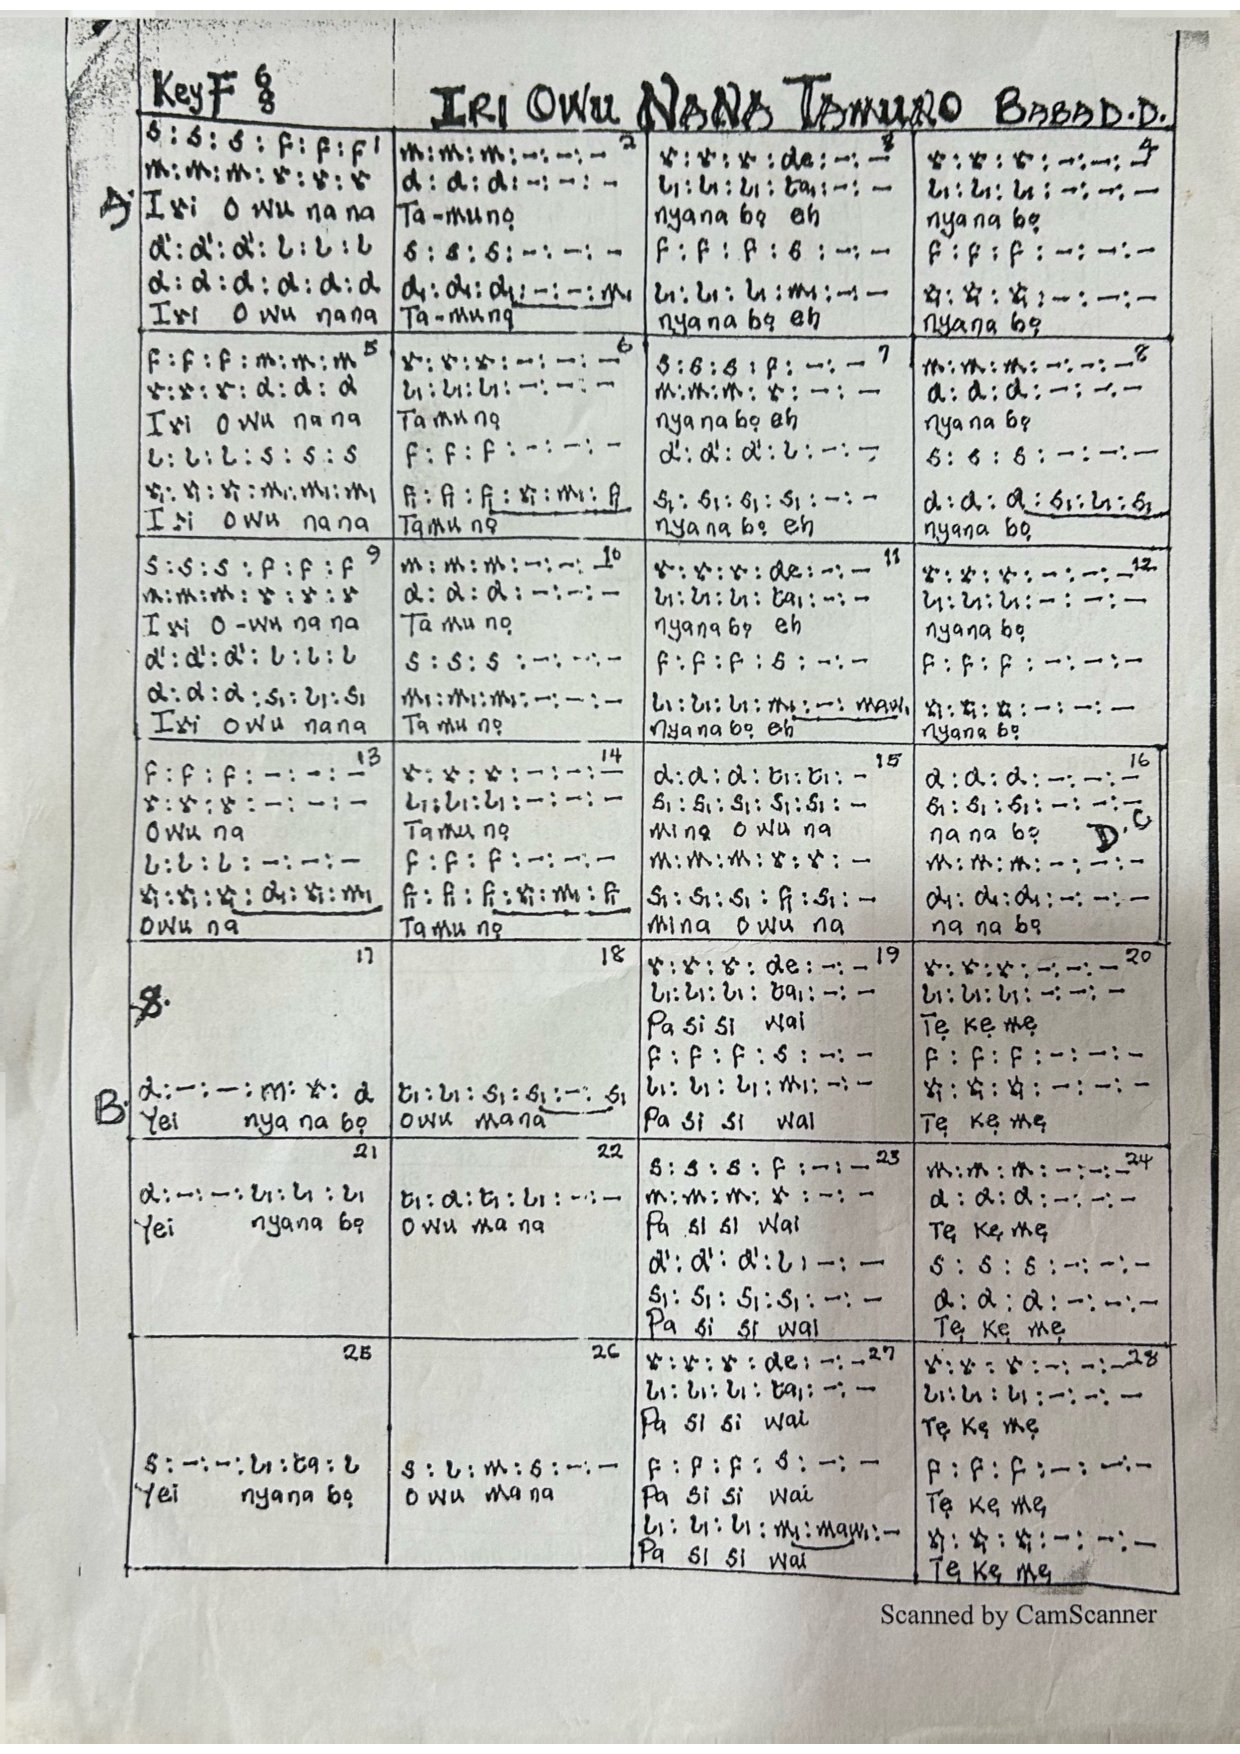 Key F 6/8
IRI OWU NANA TAMUNO BABA D.D.
A.
1
s : s : s : f : f : f
m : m : m : r : r : r
Iri Owu nana
d' : d' : d' : l : l : l
d : d : d : d : d : d
Iri Owu nana
2
m : m : m : – : – : –
d : d : d : – : – : –
Ta-munọ
s : s : s : – : – : –
d₁ : d₁ : d₁ : – : – : m₁
Ta-munọ
3
r : r : r : de : – : –
l₁ : l₁ : l₁ : ta₁ : – : –
nyanabọ eh
f : f : f : s : – : –
l₁ : l₁ : l₁ : m₁ : – : –
nyanabọ eh
4
r : r : r : – : – : –
l₁ : l₁ : l₁ : – : – : –
nyanabọ
f : f : f : – : – : –
r₁ : r₁ : r₁ : – : – : –
nyanabọ
5
f : f : f : m : m : m
r : r : r : d : d : d
Iri Owu nana
l : l : l : s : s : s
r₁ : r₁ : r₁ : m₁ : m₁ : m₁
Iri Owu nana
6
r : r : r : – : – : –
l₁ : l₁ : l₁ : – : – : –
Tamunọ
f : f : f : – : – : –
f₁ : f₁ : f₁ : r₁ : m₁ : f₁
Tamunọ
7
s : s : s : f : – : –
m : m : m : r : – : –
nyanabọ eh
d' : d' : d' : l : – : –
s₁ : s₁ : s₁ : s₁ : – : –
nyanabọ eh
8
m : m : m : – : – : –
d : d : d : – : – : –
nyanabọ
s : s : s : – : – : –
d : d : d : s₁ : l₁ : s₁
nyanabọ
9
s : s : s : f : f : f
m : m : m : r : r : r
Iri O-wu nana
d' : d' : d' : l : l : l
d : d : d : s₁ : l₁ : s₁
Iri Owu nana
10
m : m : m : – : – : –
d : d : d : – : – : –
Tamunọ
s : s : s : – : – : –
m₁ : m₁ : m₁ : – : – : –
Tamunọ
11
r : r : r : de : – : –
l₁ : l₁ : l₁ : ta₁ : – : –
nyanabọ eh
f : f : f : s : – : –
l₁ : l₁ : l₁ : m₁ : – : maw₁
nyanabọ eh
12
r : r : r : – : – : –
l₁ : l₁ : l₁ : – : – : –
nyanabọ
f : f : f : – : – : –
r₁ : r₁ : r₁ : – : – : –
nyanabọ
13
f : f : f : – : – : –
r : r : r : – : – : –
Owu na
l : l : l : – : – : –
r₁ : r₁ : r₁ : d₁ : r₁ : m₁
Owu na
14
r : r : r : – : – : –
l₁ : l₁ : l₁ : – : – : –
Tamunọ
f : f : f : – : – : –
f₁ : f₁ : f₁ : r₁ : m₁ : f₁
Tamunọ
15
d : d : d : t₁ : t₁ : –
s₁ : s₁ : s₁ : s₁ : s₁ : –
mina Owu na
m : m : m : r : r : –
s₁ : s₁ : s₁ : f₁ : s₁ : –
mina Owu na
16
d : d : d : – : – : –
s₁ : s₁ : s₁ : – : – : –
nana bọ D.C
m : m : m : – : – : –
d₁ : d₁ : d₁ : – : – : –
nana bọ
17
S.
B.
d : – : – : m : r : d
Yei nyanabọ
18
t₁ : l₁ : s₁ : s₁ : – : s₁
Owu mana
19
r : r : r : de : – : –
l₁ : l₁ : l₁ : ta₁ : – : –
Pa si si wai
f : f : f : s : – : –
l₁ : l₁ : l₁ : m₁ : – : –
Pa si si wai
20
r : r : r : – : – : –
l₁ : l₁ : l₁ : – : – : –
Tẹ kẹ mẹ
f : f : f : – : – : –
r₁ : r₁ : r₁ : – : – : –
Tẹ kẹ mẹ
21
d : – : – : l₁ : l₁ : l₁
Yei nyanabọ
22
t₁ : d : t₁ : l₁ : – : –
Owu mana
23
s : s : s : f : – : –
m : m : m : r : – : –
Pa si si wai
d' : d' : d' : l : – : –
s₁ : s₁ : s₁ : s₁ : – : –
Pa si si wai
24
m : m : m : – : – : –
d : d : d : – : – : –
Tẹ kẹ mẹ
s : s : s : – : – : –
d : d : d : – : – : –
Tẹ kẹ mẹ
25
s : – : – : l₁ : ta : l
Yei nyanabọ
26
s : l : m : s : – : –
Owu mana
27
r : r : r : de : – : –
l₁ : l₁ : l₁ : ta₁ : – : –
Pa si si wai
f : f : f : s : – : –
Pa si si wai
l₁ : l₁ : l₁ : m₁ : maw₁ : –
Pa si si wai
28
r : r : r : – : – : –
l₁ : l₁ : l₁ : – : – : –
Tẹ kẹ mẹ
f : f : f : – : – : –
Tẹ kẹ mẹ
r₁ : r₁ : r₁ : – : – : –
Tẹ kẹ mẹ
Scanned by CamScanner